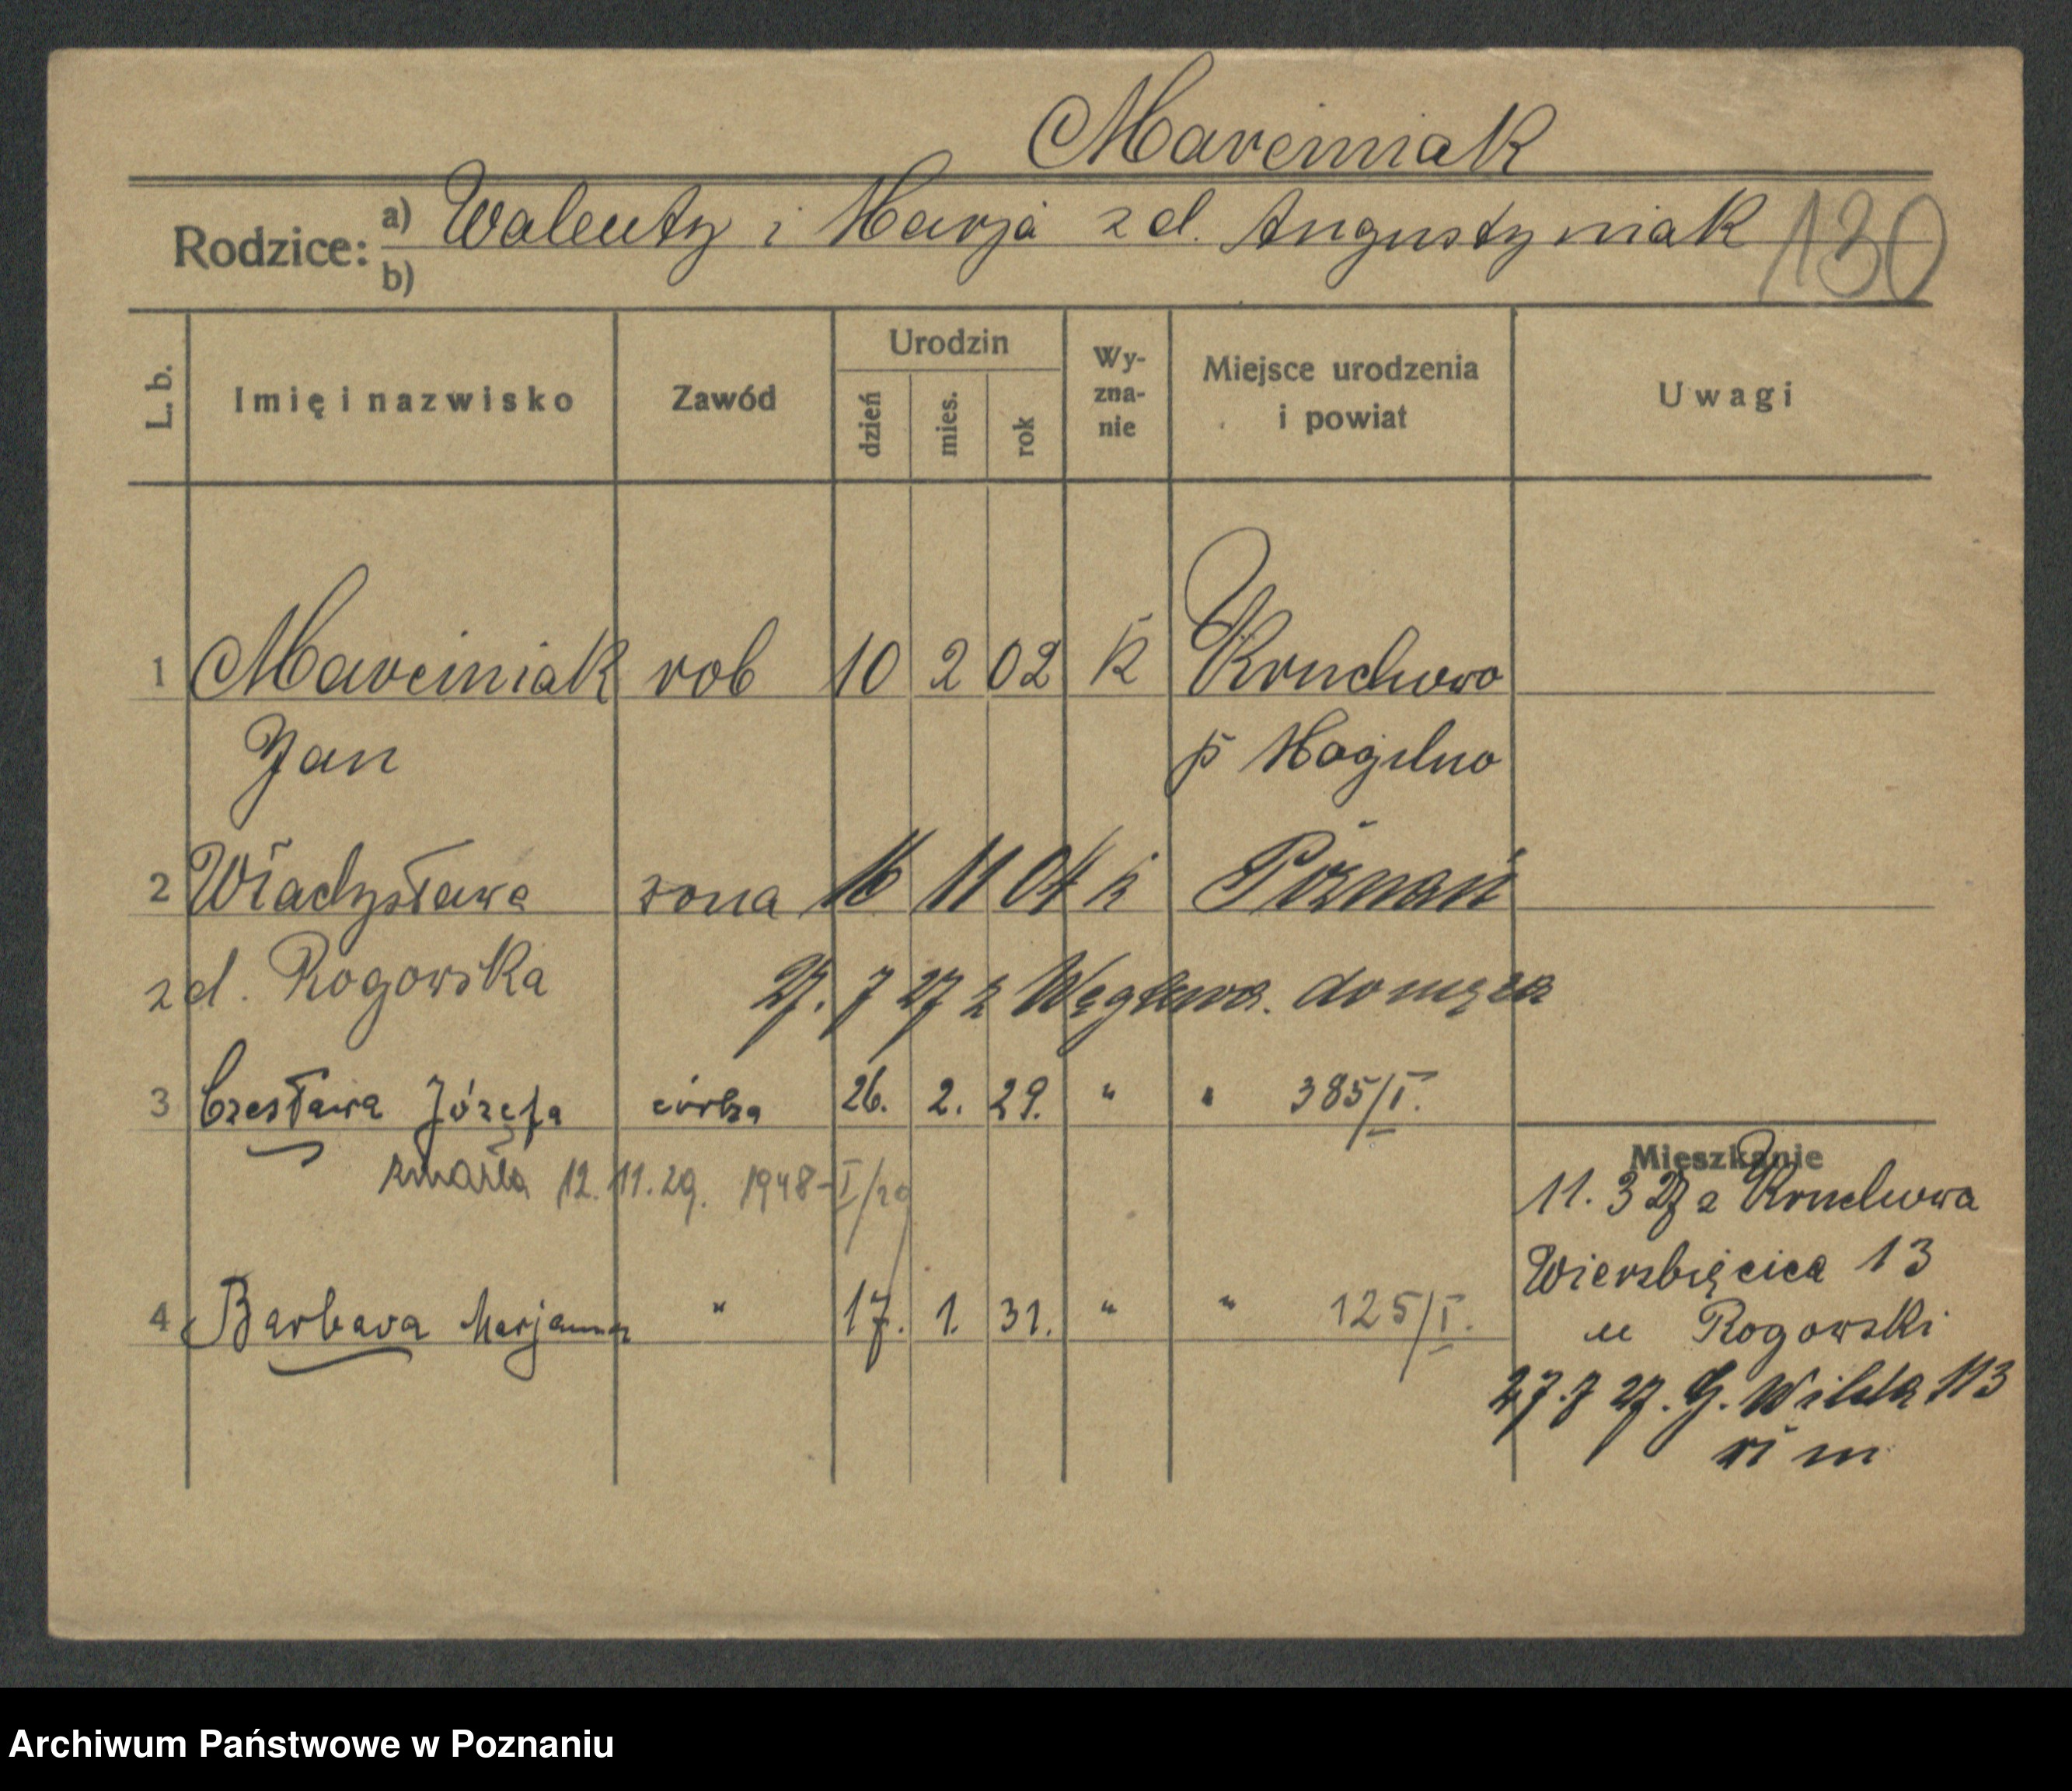 Marciniak
Rodzice: a) Walenty i Marja zd. Augustyniak 130
b)
L. b. Imię i nazwisko Zawód Urodzin dzień mies. rok Wy-zna-nie Miejsce urodzenia i powiat Uwagi
1 Marciniak rob 10 2 02 k Kruchowo
Jan p Mogilno
2 Władysława żona 16 11 04 k Poznań
zd. Rogowska 27. 7 27 z Węglewa. do męża
3 Czesława Józefa córka 26. 2. 29. " " 385/I.
zmarła 12.11.29. 1948-I/29
Mieszkanie
11. 3 27 z Kruchowa
Wierzbięcice 13
u Rogowski
4 Barbara Marjanna " 17. 1. 31. " " 125/I.
27.7 27. G. Wilda 113
m